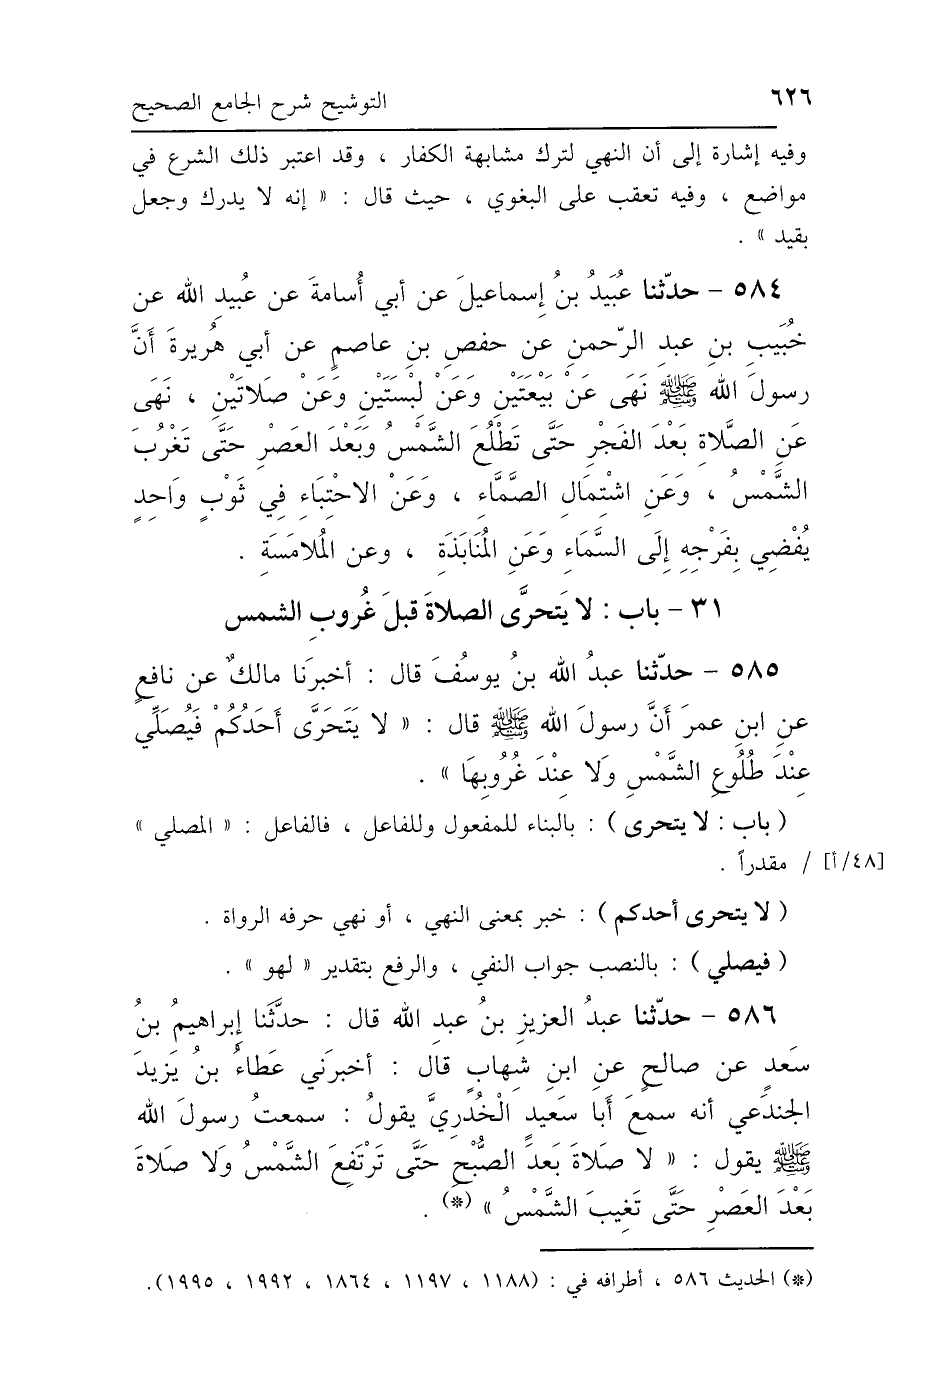 ٦٢٦
التوشيح شرح الجامع الصحيح
وفيه إشارة إلى أن النهي لترك مشابهة الكفار ، وقد اعتبر ذلك الشرع في
مواضع ، وفيه تعقب على البغوي ، حيث قال : « إنه لا يدرك وجعل
بقيد » .
٥٨٤ - حدّثنا عُبَيدُ بنُ إسماعيلَ عن أبي أُسامةَ عن عبيدِ الله عن
خُبَيبِ بنِ عبد الرّحمنِ عن حفصِ بنِ عاصمٍ عن أبي هُريرةَ أنَّ
رسولَ الله ﷺ نَهَى عَنْ بَيْعَتَيْنِ وَعَنْ لِبْسَتَيْنِ وَعَنْ صَلاتَيْنِ ، نَهَى
عَنِ الصَّلاةِ بَعْدَ الفَجْرِ حَتَّى تَطْلُعَ الشَّمْسُ وَبَعْدَ العَصْرِ حَتَّى تَغْرُبَ
الشَّمْسُ ، وَعَنِ اشْتِمَالِ الصَّمَّاءِ ، وَعَنْ الاحْتِبَاءِ فِي ثَوْبٍ وَاحِدٍ
يُفْضِي بِفَرْجِهِ إِلَى السَّمَاءِ وَعَنِ المُنَابَذَةِ ، وعن المُلامَسَةِ .
٣١ - باب : لا يَتحرَّى الصلاةَ قبلَ غُروبِ الشمس
٥٨٥ - حدّثنا عبدُ الله بنُ يوسُفَ قال : أخبرَنا مالكٌ عن نافعٍ
عنِ ابنِ عمرَ أنَّ رسولَ الله ﷺ قال : « لا يَتَحَرَّى أَحَدُكُمْ فَيُصَلِّي
عِنْدَ طُلُوعِ الشَّمْسِ وَلا عِنْدَ غُرُوبِهَا » .
( باب : لا يتحرى ) : بالبناء للمفعول وللفاعل ، فالفاعل : « المصلي »
[٤٨/أ] / مقدراً .
( لا يتحرى أحدكم ) : خبر بمعنى النهي ، أو نهي حرفه الرواة .
( فيصلي ) : بالنصب جواب النفي ، والرفع بتقدير « لهو » .
٥٨٦ - حدّثنا عبدُ العزيزِ بنُ عبدِ الله قال : حدَّثَنا إبراهيمُ بنُ
سَعدٍ عن صالحٍ عنِ ابنِ شِهابٍ قال : أخبرَني عَطاءُ بنُ يَزيدَ
الجندَعي أنه سمعَ أبا سَعيدٍ الْخُدْرِيَّ يقولُ : سمعتُ رسولَ الله
ﷺ يقول : « لا صَلاةَ بَعدَ الصُّبْحِ حَتَّى تَرْتَفِعَ الشَّمْسُ وَلا صَلاةَ
بَعْدَ العَصْرِ حَتَّى تَغِيبَ الشَّمْسُ » (*) .
(*) الحديث ٥٨٦ ، أطرافه في : (١١٨٨ ، ١١٩٧ ، ١٨٦٤ ، ١٩٩٢ ، ١٩٩٥).